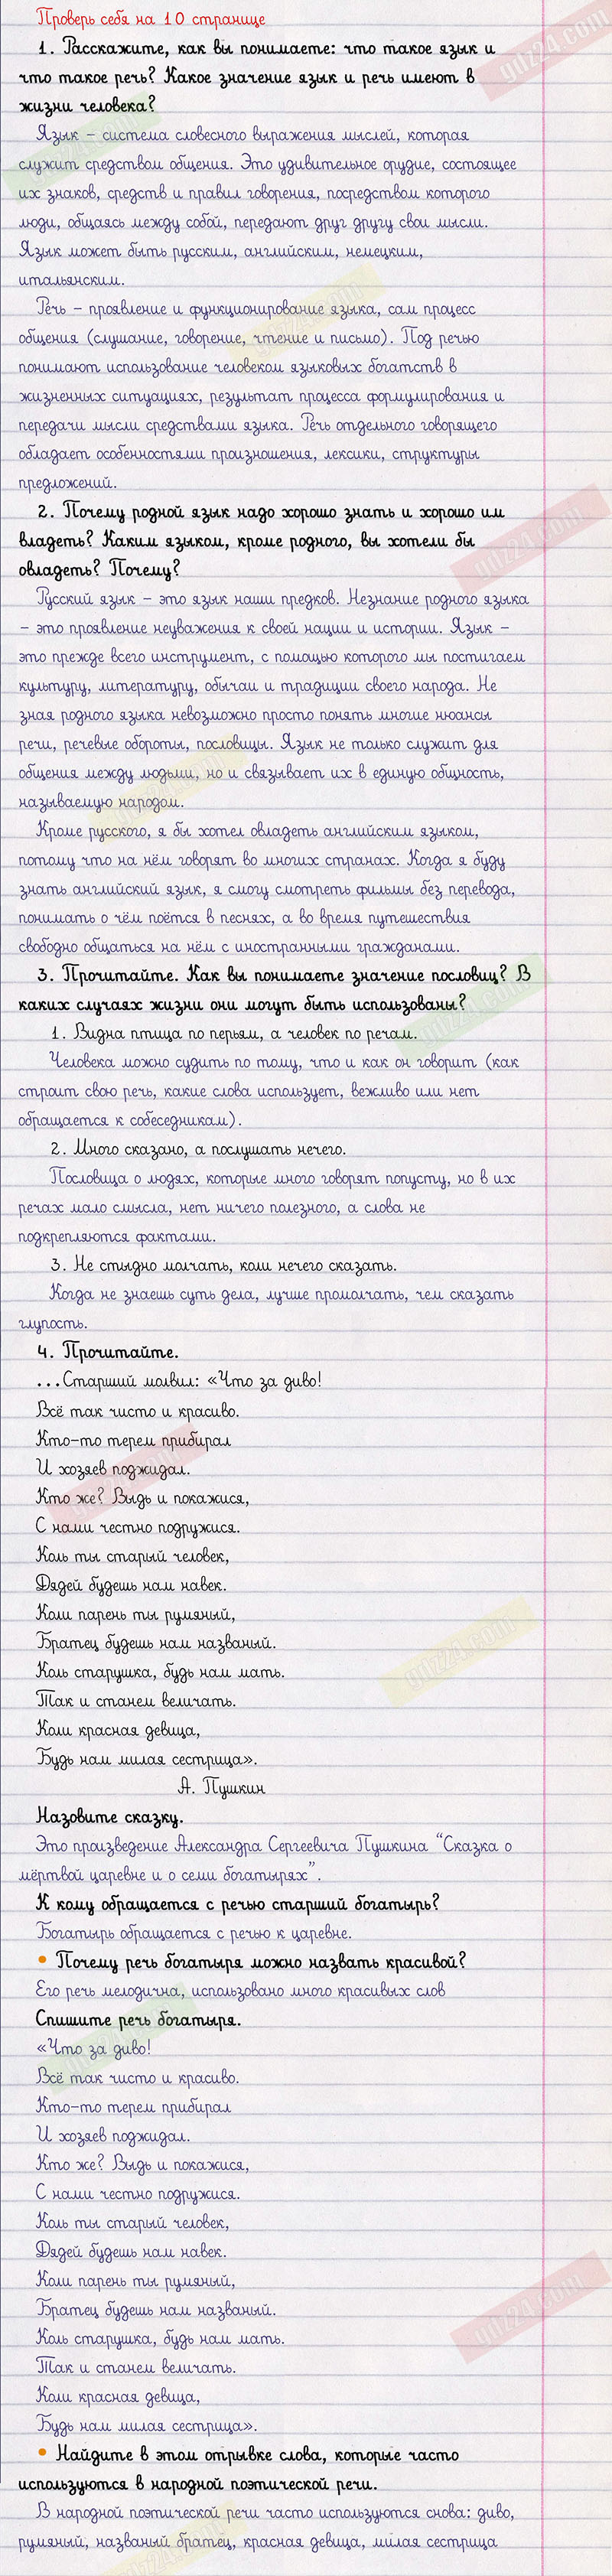 Проверь себя на 10 странице
1. Расскажите, как вы понимаете: что такое язык и
что такое речь? Какое значение язык и речь имеют в
жизни человека?
Язык – система словесного выражения мыслей, которая
служит средством общения. Это удивительное орудие, состоящее
их знаков, средств и правил говорения, посредством которого
люди, общаясь между собой, передают друг другу свои мысли.
Язык может быть русским, английским, немецким,
итальянским.
Речь – проявление и функционирование языка, сам процесс
общения (слушание, говорение, чтение и письмо). Под речью
понимают использование человеком языковых богатств в
жизненных ситуациях, результат процесса формулирования и
передачи мысли средствами языка. Речь отдельного говорящего
обладает особенностями произношения, лексики, структуры
предложений.
2. Почему родной язык надо хорошо знать и хорошо им
владеть? Каким языком, кроме родного, вы хотели бы
овладеть? Почему?
Русский язык – это язык наши предков. Незнание родного языка
– это проявление неуважения к своей нации и истории. Язык –
это прежде всего инструмент, с помощью которого мы постигаем
культуру, литературу, обычаи и традиции своего народа. Не
зная родного языка невозможно просто понять многие нюансы
речи, речевые обороты, пословицы. Язык не только служит для
общения между людьми, но и связывает их в единую общность,
называемую народом.
Кроме русского, я бы хотел овладеть английским языком,
потому что на нём говорят во многих странах. Когда я буду
знать английский язык, я смогу смотреть фильмы без перевода,
понимать о чём поётся в песнях, а во время путешествия
свободно общаться на нём с иностранными гражданами.
3. Прочитайте. Как вы понимаете значение пословиц? В
каких случаях жизни они могут быть использованы?
1. Видна птица по перьям, а человек по речам.
Человека можно судить по тому, что и как он говорит (как
строит свою речь, какие слова использует, вежливо или нет
обращается к собеседникам).
2. Много сказано, а послушать нечего.
Пословица о людях, которые много говорят попусту, но в их
речах мало смысла, нет ничего полезного, а слова не
подкрепляются фактами.
3. Не стыдно молчать, коли нечего сказать.
Когда не знаешь суть дела, лучше промолчать, чем сказать
глупость.
4. Прочитайте.
...Старший молвил: «Что за диво!
Всё так чисто и красиво.
Кто-то терем прибирал
И хозяев поджидал.
Кто же? Выдь и покажися,
С нами честно подружися.
Коль ты старый человек,
Дядей будешь нам навек.
Коли парень ты румяный,
Братец будешь нам названый.
Коль старушка, будь нам мать.
Так и станем величать.
Коли красная девица,
Будь нам милая сестрица».
А. Пушкин
Назовите сказку.
Это произведение Александра Сергеевича Пушкина “Сказка о
мёртвой царевне и о семи богатырях”.
К кому обращается с речью старший богатырь?
Богатырь обращается с речью к царевне.
• Почему речь богатыря можно назвать красивой?
Его речь мелодична, использовано много красивых слов
Спишите речь богатыря.
«Что за диво!
Всё так чисто и красиво.
Кто-то терем прибирал
И хозяев поджидал.
Кто же? Выдь и покажися,
С нами честно подружися.
Коль ты старый человек,
Дядей будешь нам навек.
Коли парень ты румяный,
Братец будешь нам названый.
Коль старушка, будь нам мать.
Так и станем величать.
Коли красная девица,
Будь нам милая сестрица».
• Найдите в этом отрывке слова, которые часто
используются в народной поэтической речи.
В народной поэтической речи часто используются снова: диво,
румяный, названый братец, красная девица, милая сестрица